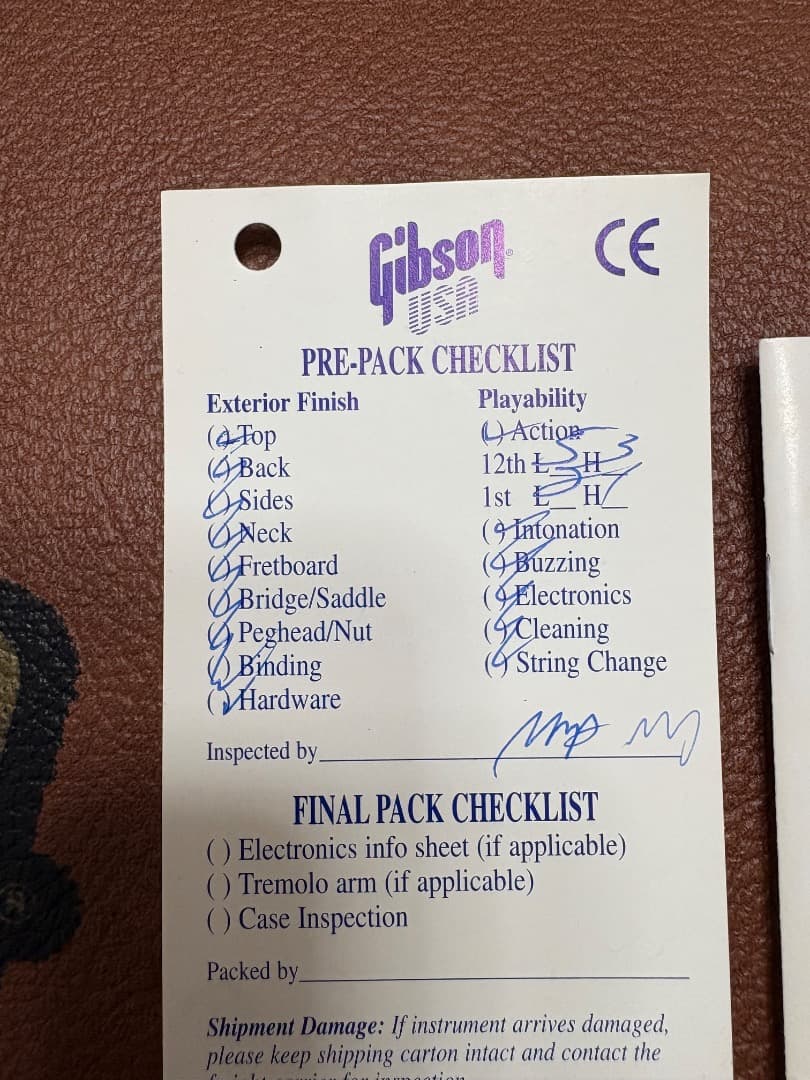 Gibson
USA
CE
PRE-PACK CHECKLIST
Exterior Finish
( ) Top
( ) Back
( ) Sides
( ) Neck
( ) Fretboard
( ) Bridge/Saddle
( ) Peghead/Nut
( ) Binding
( ) Hardware
Playability
( ) Action
12th L 5 H 3
1st L H
( ) Intonation
( ) Buzzing
( ) Electronics
( ) Cleaning
( ) String Change
Inspected by
FINAL PACK CHECKLIST
( ) Electronics info sheet (if applicable)
( ) Tremolo arm (if applicable)
( ) Case Inspection
Packed by
Shipment Damage: If instrument arrives damaged,
please keep shipping carton intact and contact the